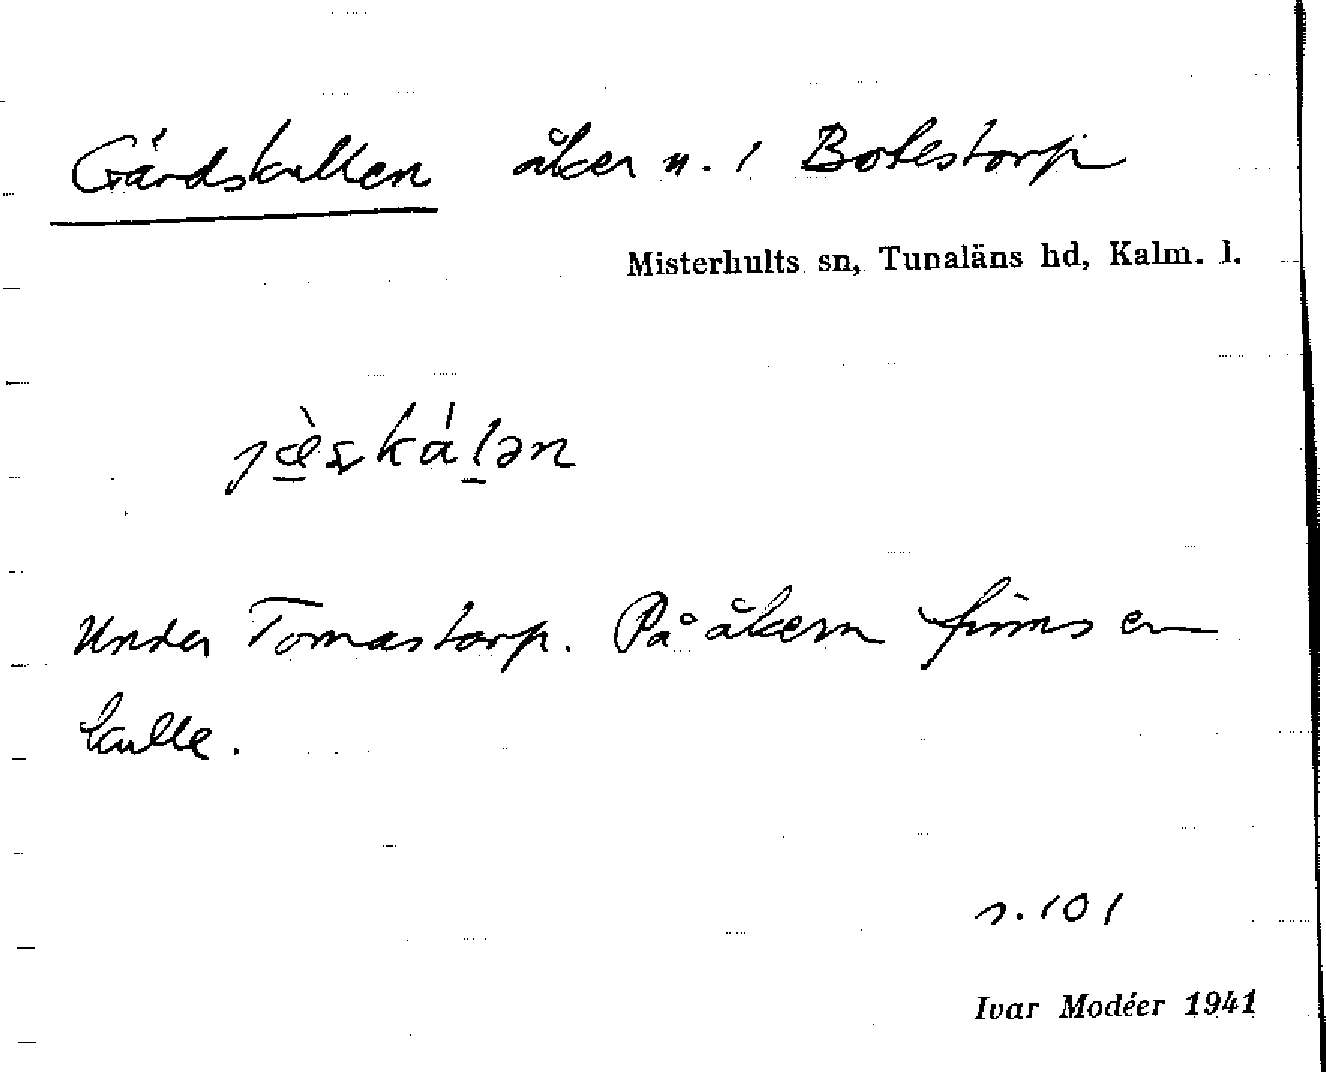 Gärdskullen åker n. 1 Botestorp
Misterhults sn, Tunaläns hd, Kalm. l.
Under Tomastorp. På åkern finns en
kulle.
s. 101
Ivar Modéer 1941